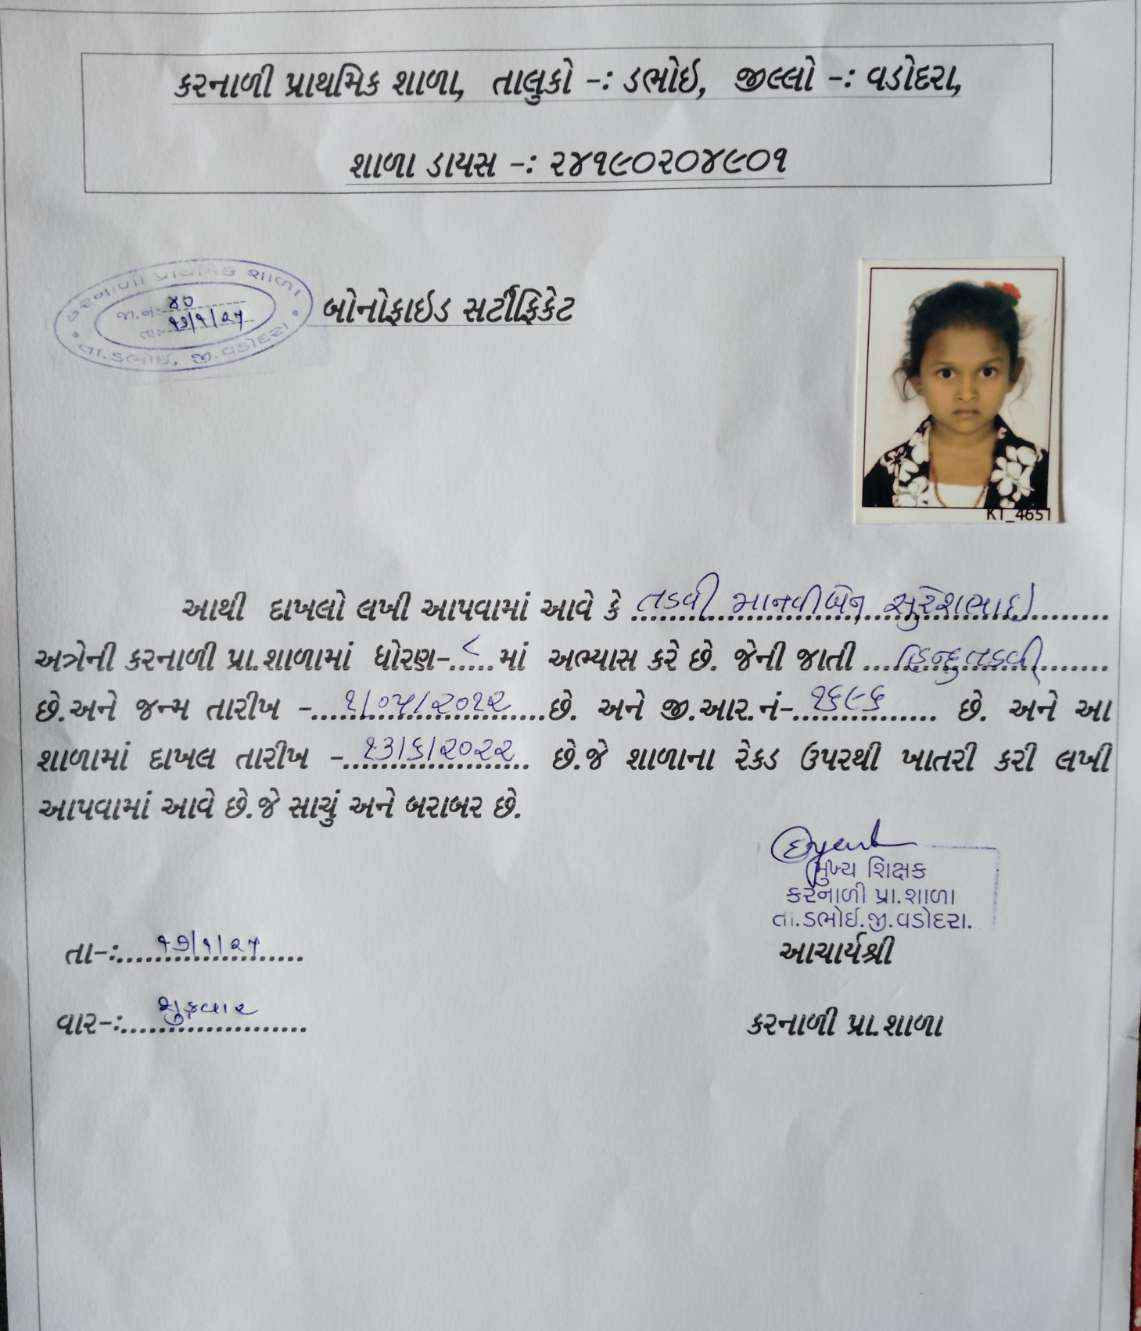 કરનાળી પ્રાથમિક શાળા, તાલુકો -: ડભોઇ, જીલ્લો -: વડોદરા,
શાળા ડાયસ -: ૨૪૧૯૦૨૦૪૯૦૧
કરનાળી પ્રાથમિક શાળા
જા.નં:- ૪૦
તા:- ૧૭/૧/૨૫
તા.ડભોઇ, જી.વડોદરા
બોનોફાઇડ સર્ટીફિકેટ
KT_4651
આથી દાખલો લખી આપવામાં આવે કે તડવી માનવીબેન સુરેશભાઇ
અત્રેની કરનાળી પ્રા.શાળામાં ધોરણ-..૮..માં અભ્યાસ કરે છે. જેની જાતી ...હિન્દુ તડવી......
છે.અને જન્મ તારીખ -...૧/૦૫/૨૦૧૨...છે. અને જી.આર.નં-..૧૬૯૬...... છે. અને આ
શાળામાં દાખલ તારીખ -..૧૩/૬/૨૦૨૨.. છે.જે શાળાના રેકડ ઉપરથી ખાતરી કરી લખી
આપવામાં આવે છે.જે સાચું અને બરાબર છે.
મુખ્ય શિક્ષક
કરનાળી પ્રા.શાળા
તા.ડભોઇ.જી.વડોદરા.
તા-:....૧૭/૧/૨૫.....
આચાર્યશ્રી
વાર-:....શુક્રવાર.....
કરનાળી પ્રા.શાળા